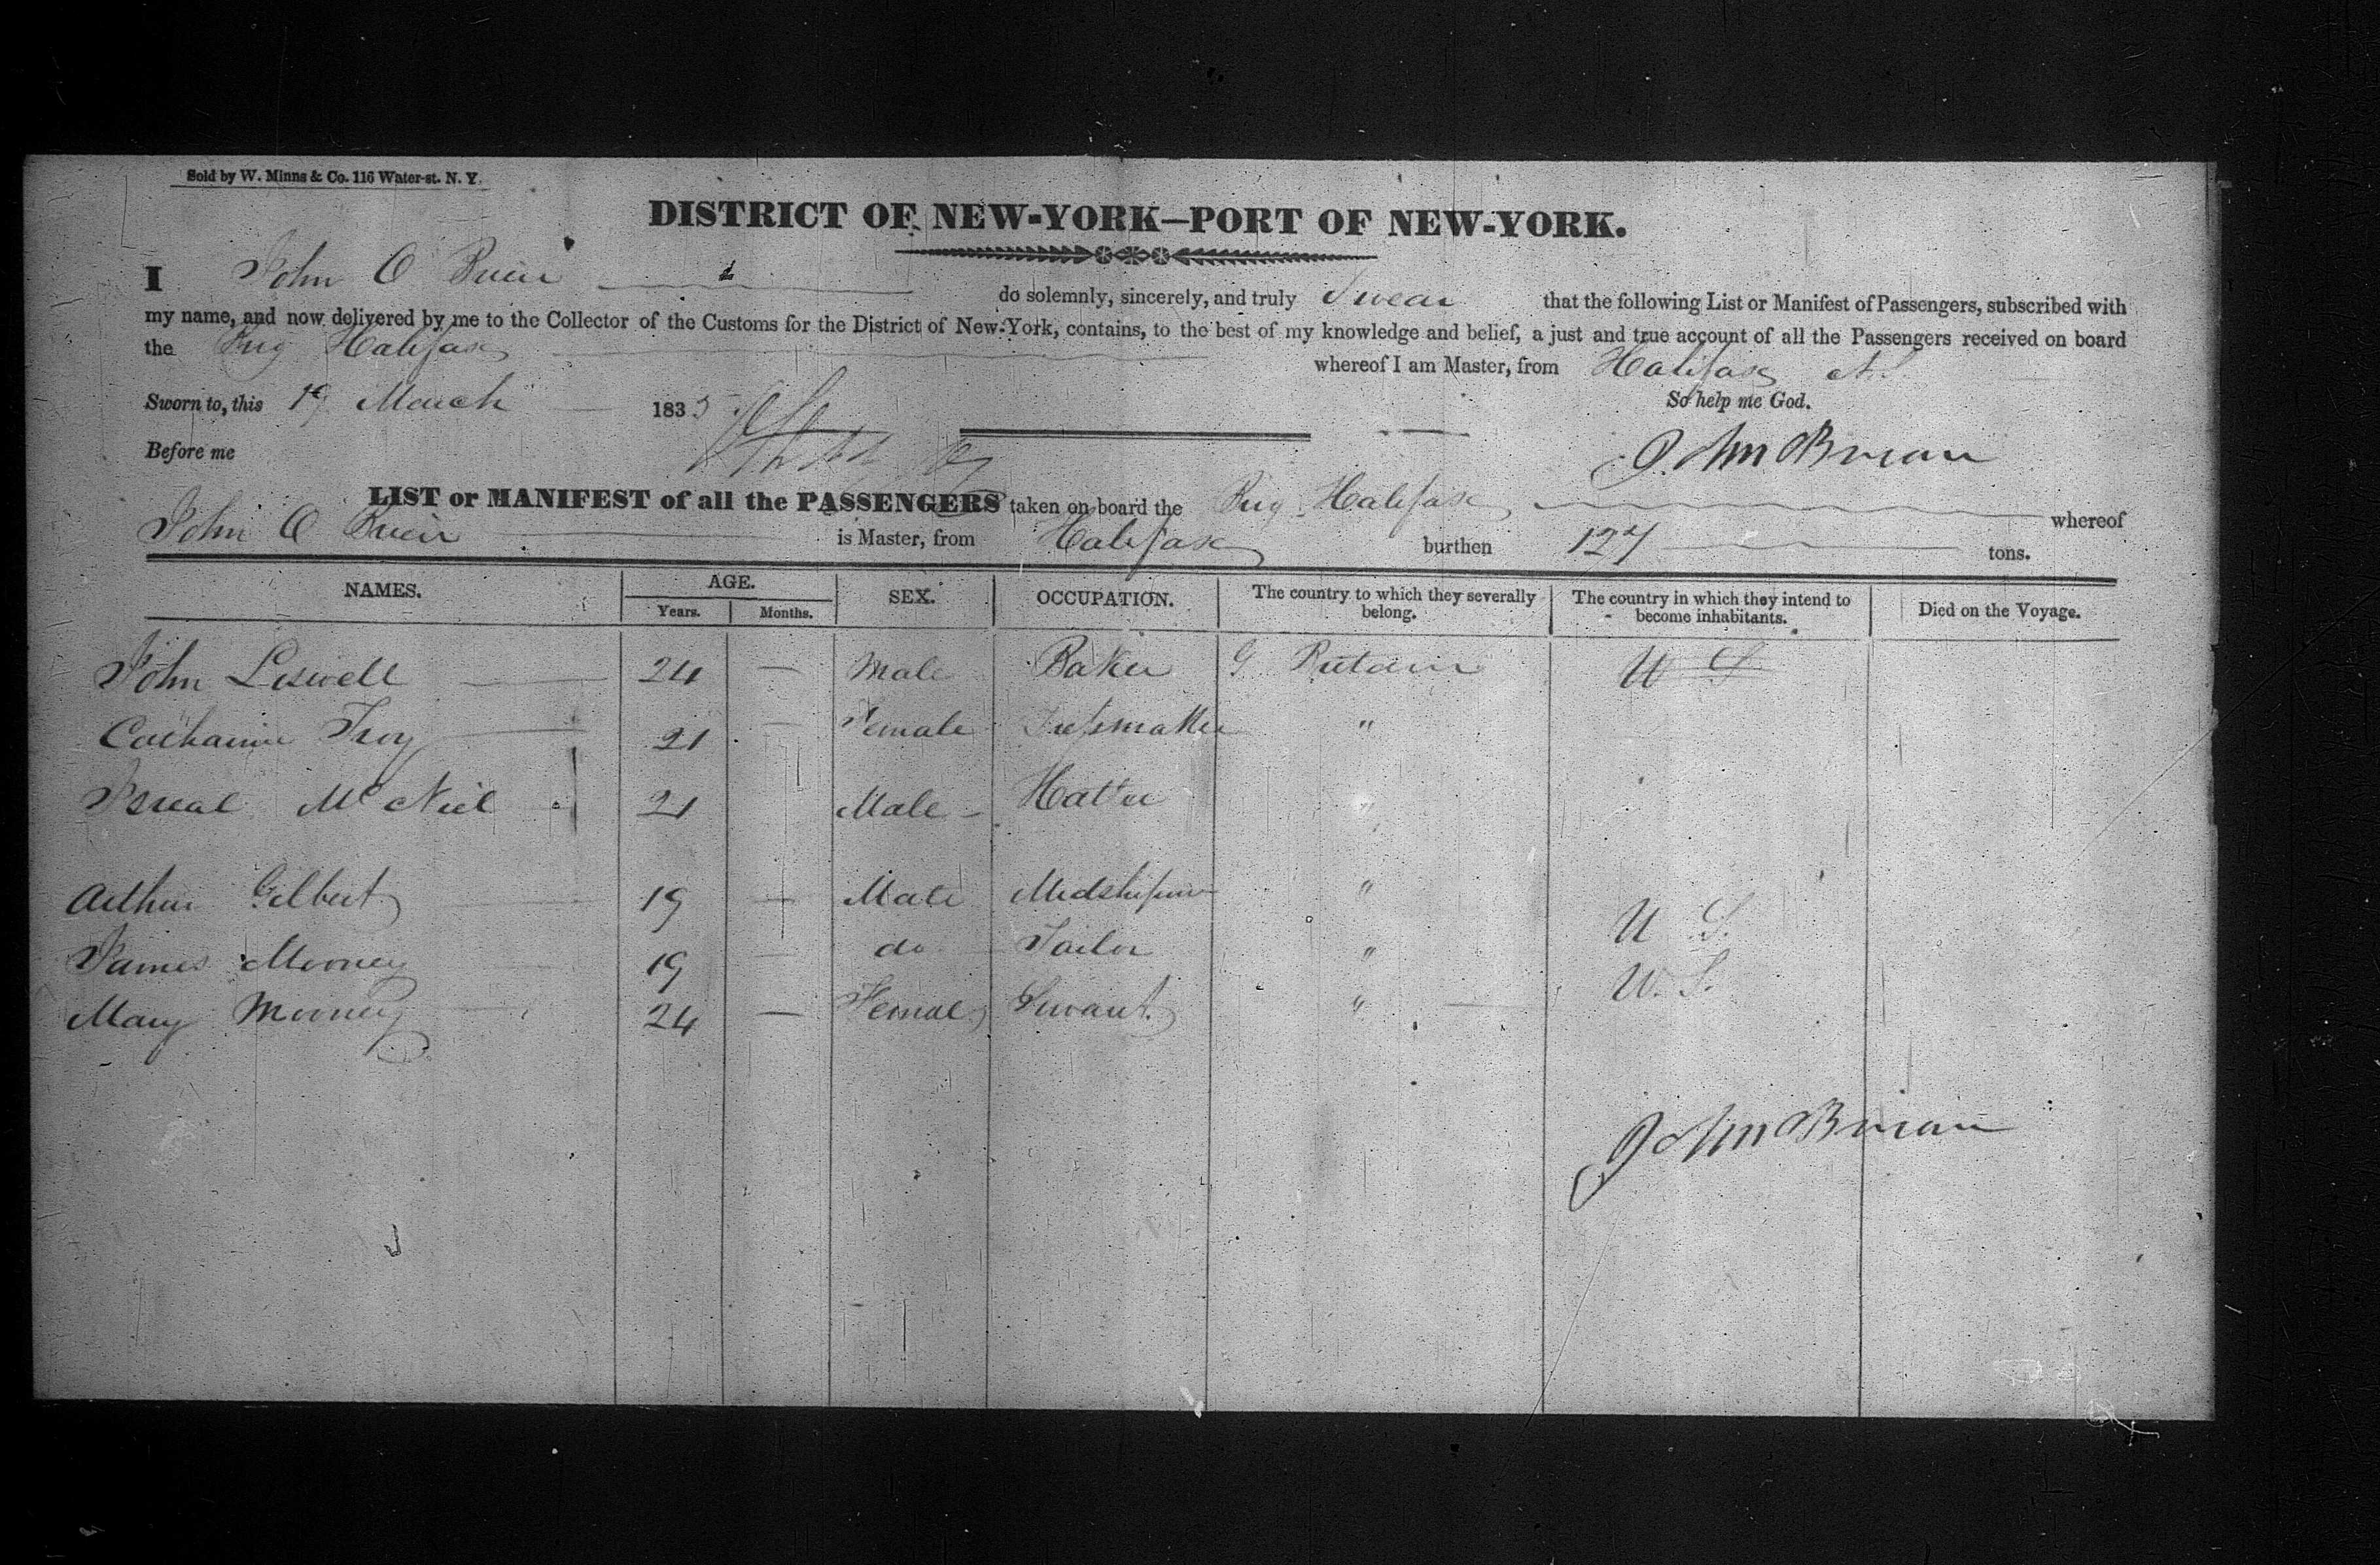 Sold by W. Minns & Co. 116 Water-st. N. Y.
DISTRICT OF NEW-YORK—PORT OF NEW-YORK.
I John O Brien do solemnly, sincerely, and truly Swear that the following List or Manifest of Passengers, subscribed with
my name, and now delivered by me to the Collector of the Customs for the District of New-York, contains, to the best of my knowledge and belief, a just and true account of all the Passengers received on board
the Brig Halifax whereof I am Master, from Halifax N.S.
Sworn to, this 19 March 1835 So help me God.
Before me John Brian
LIST or MANIFEST of all the PASSENGERS taken on board the Brig Halifax whereof
John O Brien is Master, from Halifax burthen 127 tons.
NAMES. AGE. Years. Months. SEX. OCCUPATION. The country to which they severally belong. The country in which they intend to become inhabitants. Died on the Voyage.
John Liswell 24 — Male Baker G Britain U S
Catharine Troy 21 — Female Dressmaker "
McNeil 21 Male Hatter "
Arthur Gilbert 19 — Male Midshipman " U S.
James Mooney 19 — do Tailor " U. S.
Mary Mooney 24 — Female Servant "
John Brian